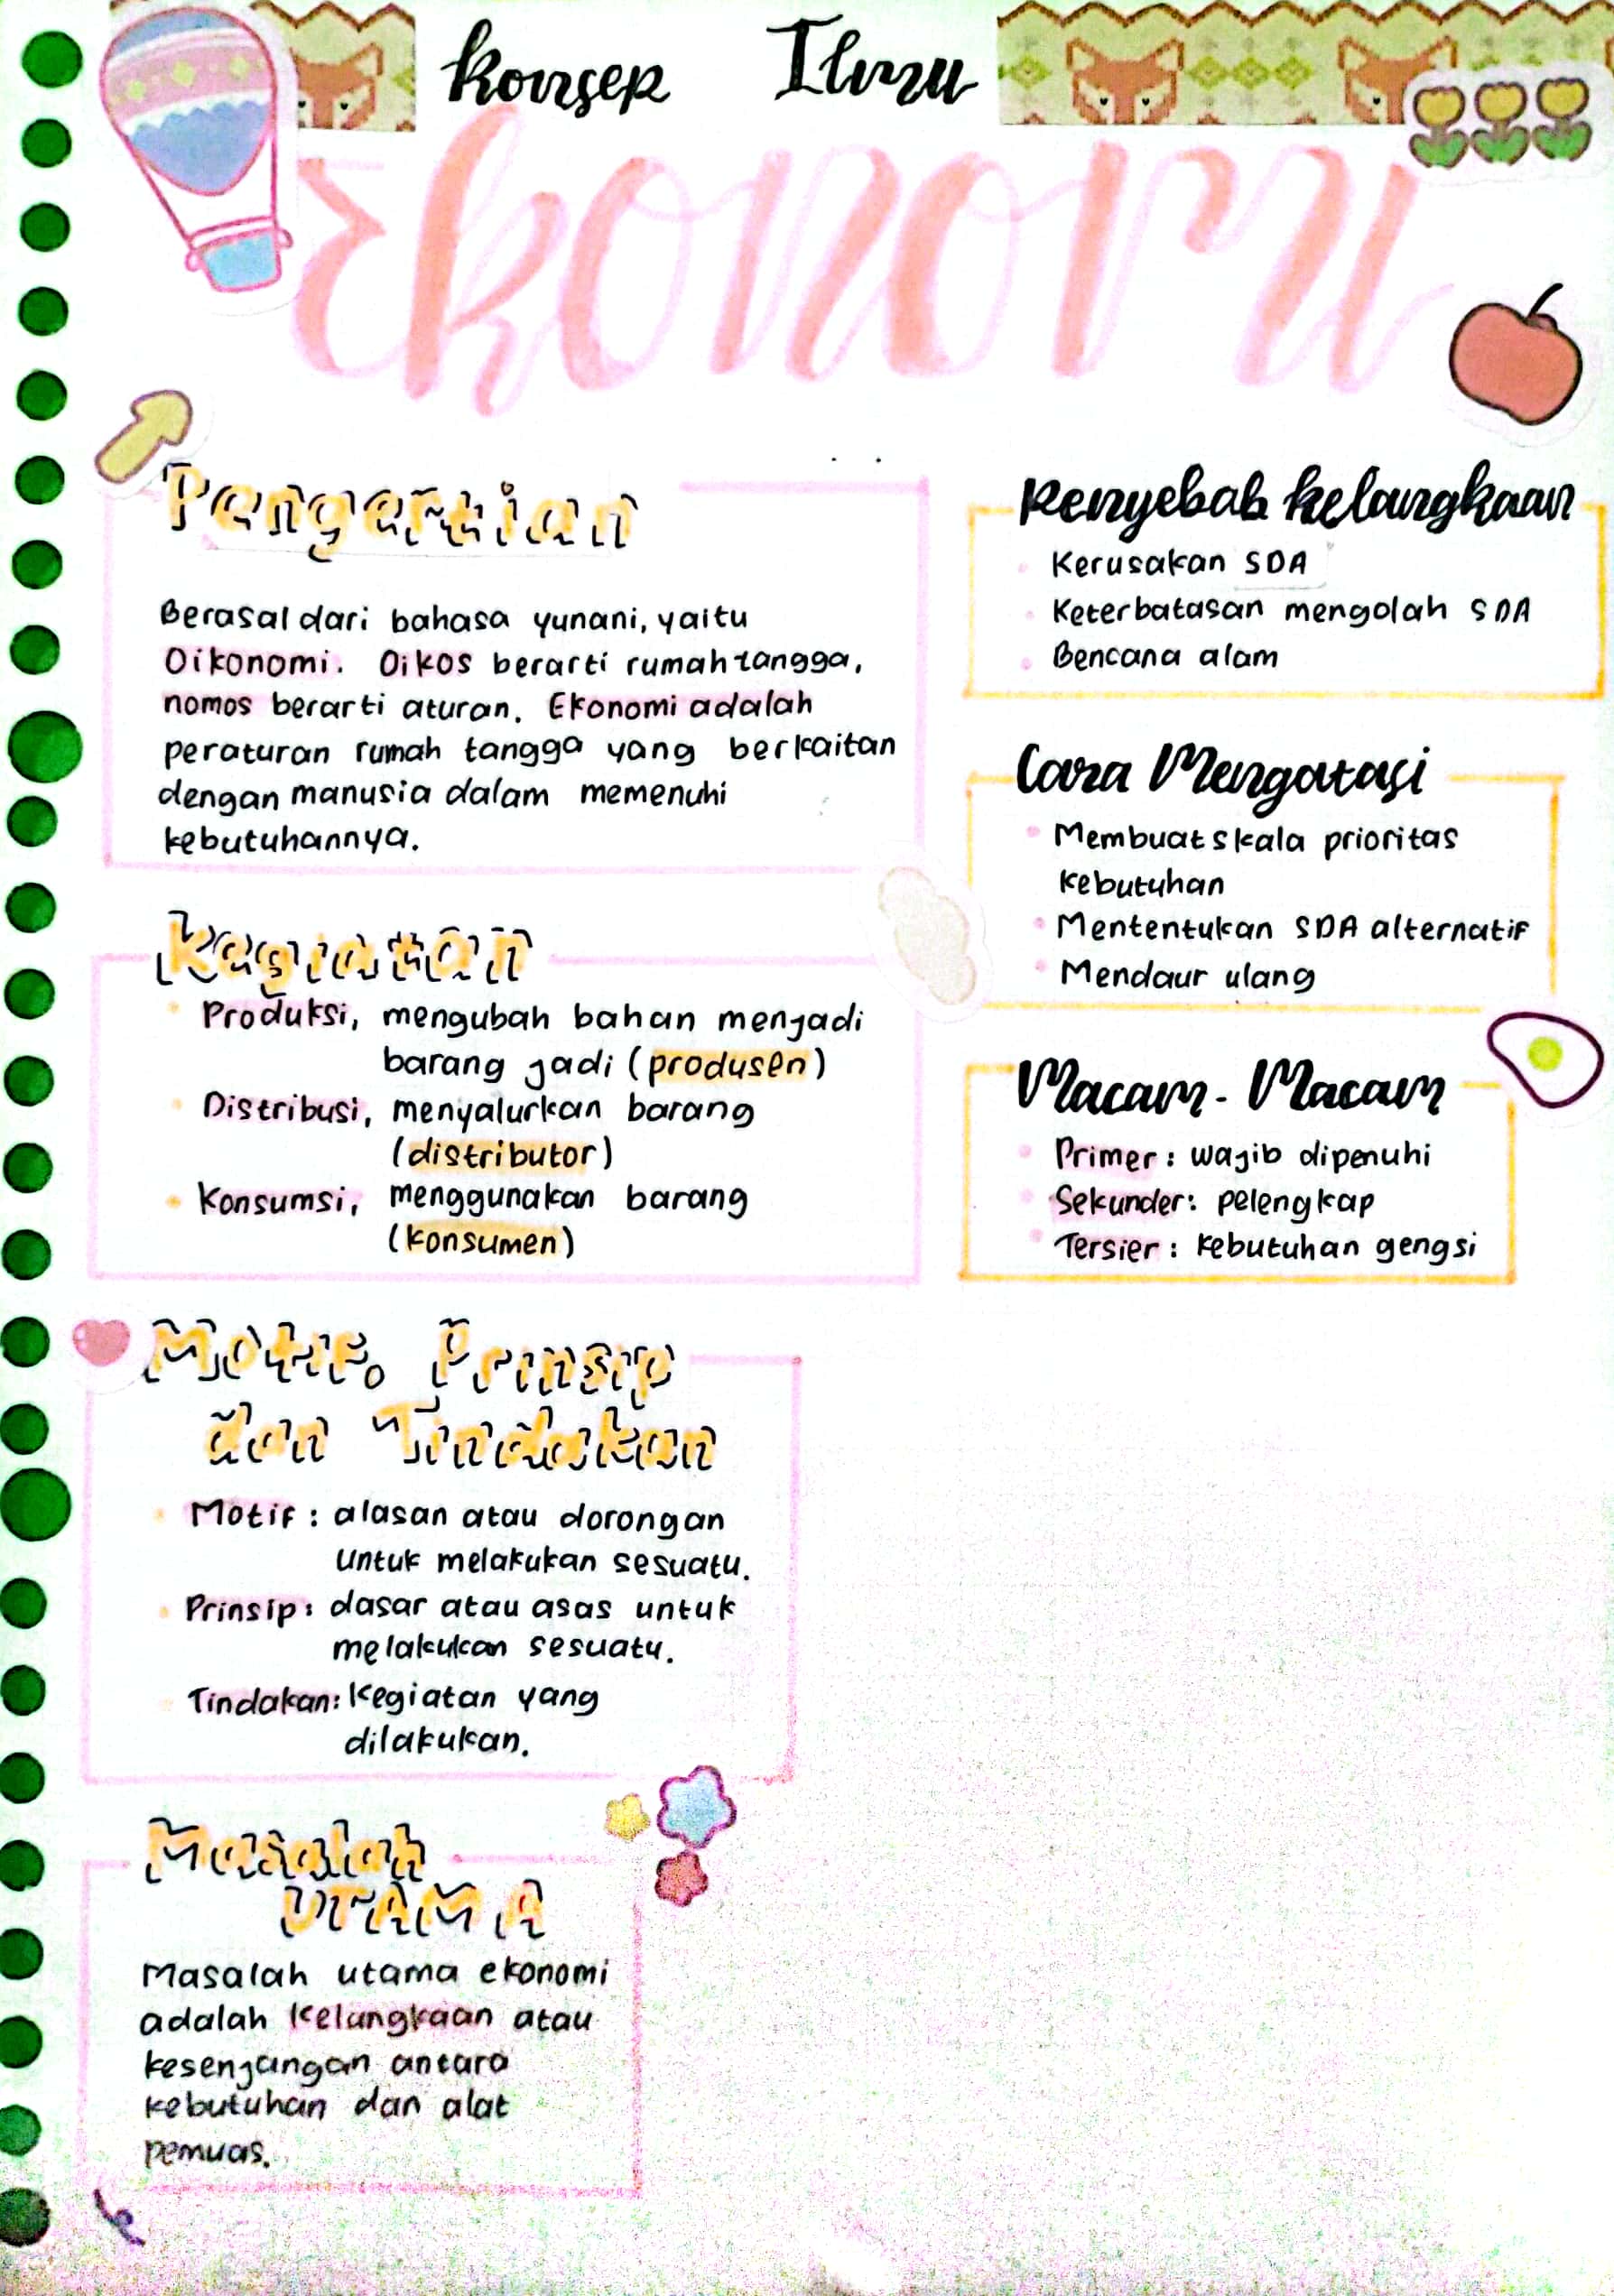 Konsep Ilmu
Ekonomi
Pengertian
Berasal dari bahasa yunani, yaitu
Oikonomi. Oikos berarti rumah tangga,
nomos berarti aturan. Ekonomi adalah
peraturan rumah tangga yang berkaitan
dengan manusia dalam memenuhi
kebutuhannya.
Kegiatan
Produksi, mengubah bahan menjadi
barang jadi (produsen)
Distribusi, menyalurkan barang
(distributor)
Konsumsi, menggunakan barang
(konsumen)
Motif, Prinsip
dan Tindakan
Motif : alasan atau dorongan
untuk melakukan sesuatu.
Prinsip : dasar atau asas untuk
melakukan sesuatu.
Tindakan : Kegiatan yang
dilakukan.
Masalah
UTAMA
Masalah utama ekonomi
adalah kelangkaan atau
kesenjangan antara
kebutuhan dan alat
pemuas.
Penyebab kelangkaan
Kerusakan SDA
Keterbatasan mengolah SDA
Bencana alam
Cara Mengatasi
Membuat skala prioritas
kebutuhan
Mententukan SDA alternatif
Mendaur ulang
Macam - Macam
Primer : wajib dipenuhi
Sekunder : pelengkap
Tersier : kebutuhan gengsi